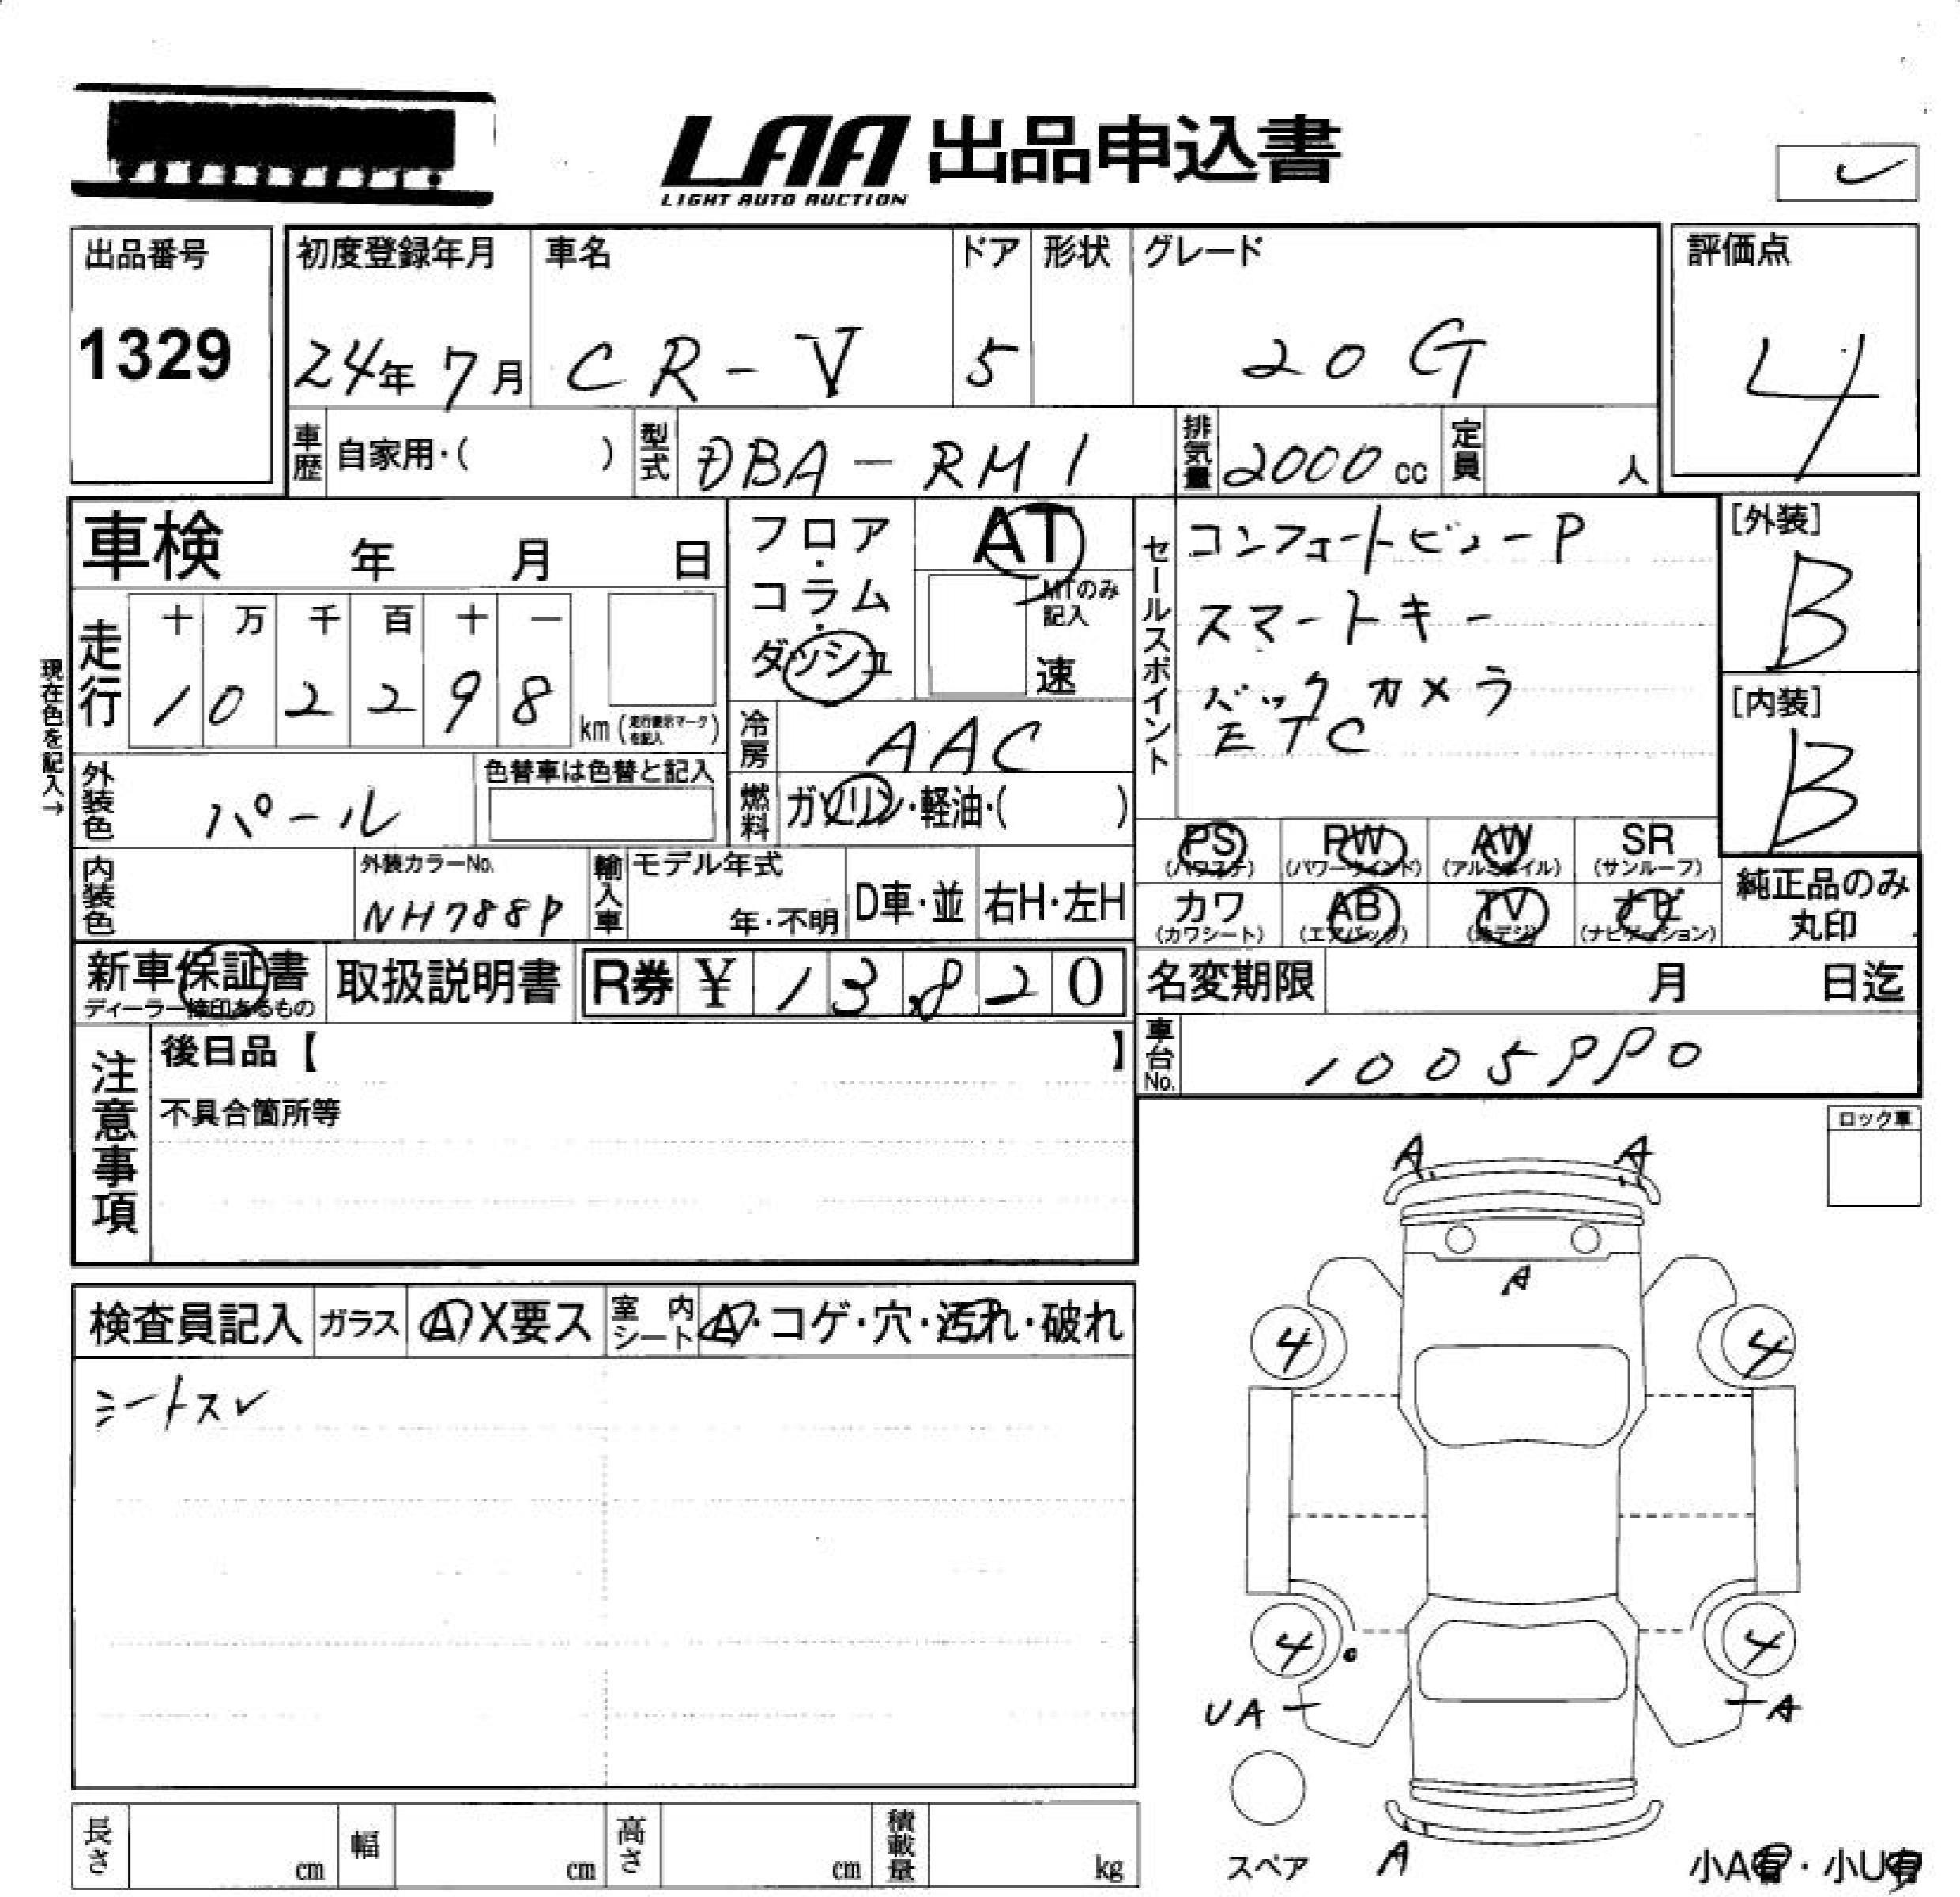 LAA 出品申込書
LIGHT AUTO AUCTION
出品番号
1329
初度登録年月
24年 7月
車名
CR-V
ドア
5
形状
グレード
20G
評価点
4
車歴 自家用・( )
型式 DBA-RM1
排気量 2000cc
定員 人
車検 年 月 日
走行
十 万 千 百 十 一
1 0 2 2 9 8
km (走行表示マークを記入)
現在色を記入→
フロア・コラム・ダッシュ
AT
MTのみ記入
速
セールスポイント
コンフォートビューP
スマートキー
バックカメラ
ETC
[外装]
B
[内装]
B
冷房 AAC
外装色 パール
色替車は色替と記入
燃料 ガソリン・軽油・( )
PS (パワステ)
PW (パワーウィンド)
AW (アルミホイル)
SR (サンルーフ)
カワ (カワシート)
AB (エアバッグ)
TV (地デジ)
ナビ (ナビゲーション)
純正品のみ丸印
内装色
外装カラーNo.
NH788P
輸入車
モデル年式
年・不明
D車・並
右H・左H
新車保証書
ディーラー捺印あるもの
取扱説明書
R券 ¥ 13,820
名変期限 月 日迄
車台No.
注意事項
後日品【 】
不具合箇所等
ロック車
検査員記入
ガラス A・X要ス
室内シート A・コゲ・穴・汚れ・破れ
シートスレ
A A
A
4 4
4 4
UA A
スペア
A
小A有・小U有
長さ cm
幅 cm
高さ cm
積載量 kg